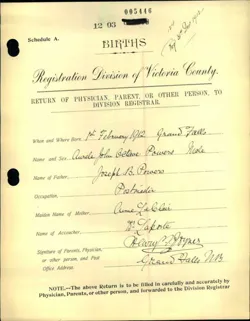 005446
12 03
Schedule A.
BIRTHS
Registration Division of Victoria County.
RETURN OF PHYSICIAN, PARENT, OR OTHER PERSON, TO
DIVISION REGISTRAR.
When and Where Born 1st February 1912 Grand Falls
Name and Sex John Powers Male
Name of Father, Joseph B. Powers
Occupation,
Maiden Name of Mother,
Name of Accoucher, Laporte
Signature of Parents, Physician,
or other person, and Post
Office Address
Grand Falls N.B.
NOTE.—The above Return is to be filled in carefully and accurately by
Physician, Parents, or other person, and forwarded to the Division Registrar